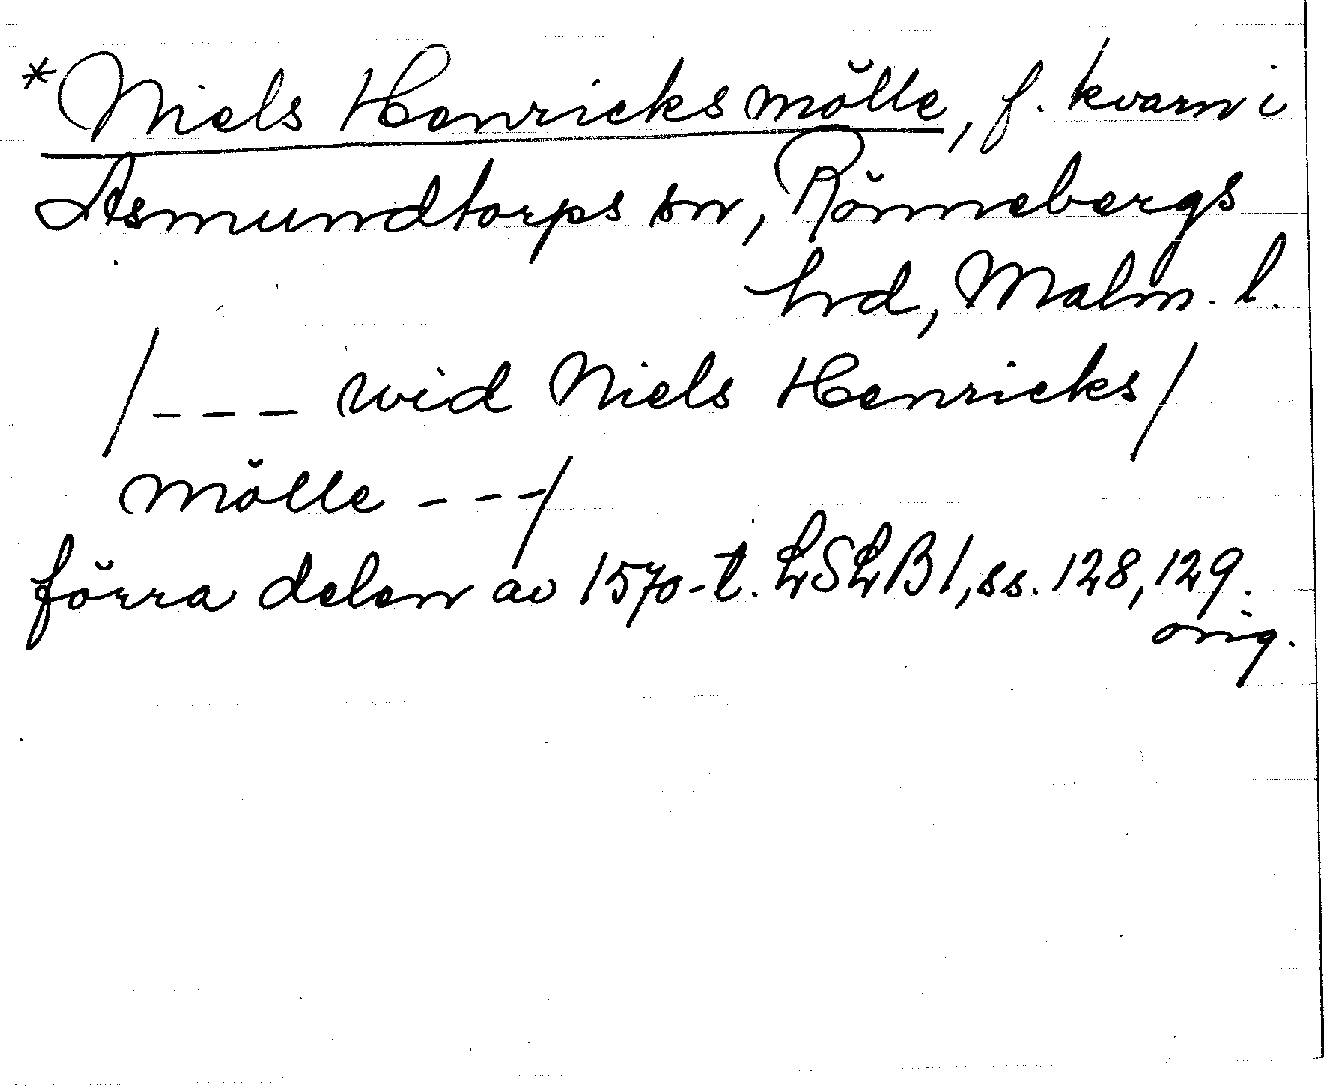 *Niels Henricks mölle, f. kvarn i
Asmundtorps sn, Rönnebergs
hrd, Malm. l.
/--- wid Niels Henricks/
mölle ---/
förra delen av 1570-t. LSLB1, ss. 128, 129.
orig.